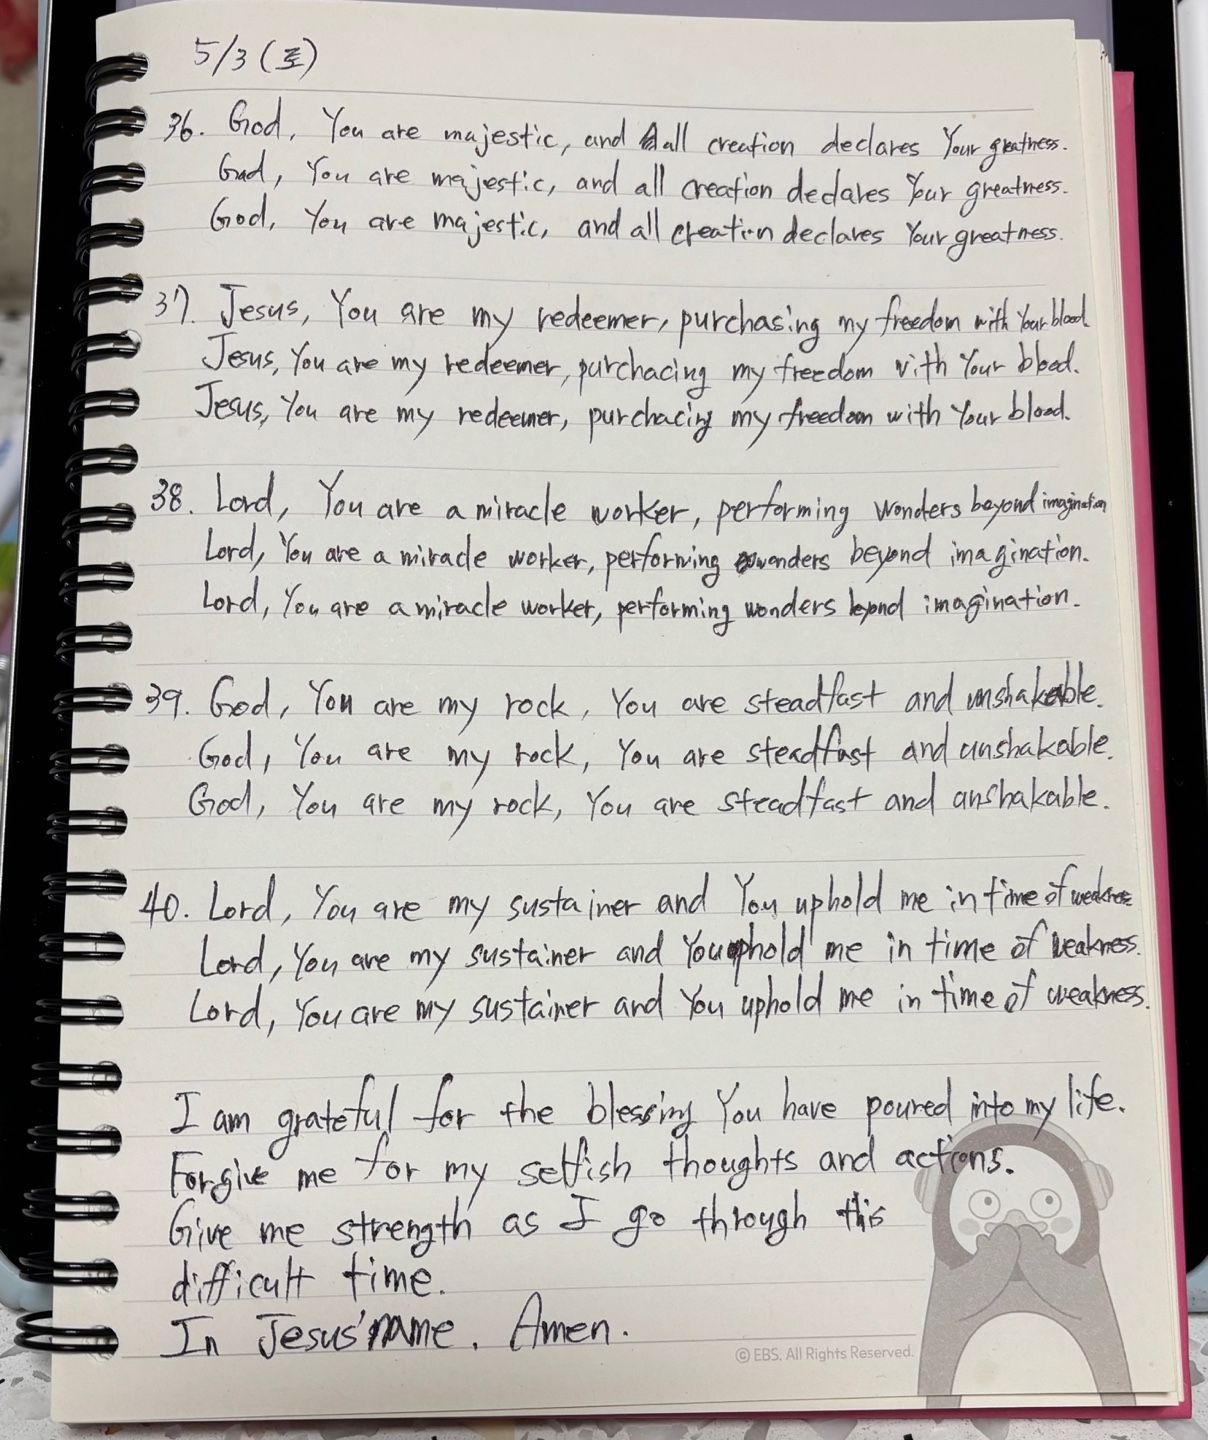 5/3 (토)
36. God, You are majestic, and all creation declares Your greatness.
God, You are majestic, and all creation declares Your greatness.
God, You are majestic, and all creation declares Your greatness.
37. Jesus, You are my redeemer, purchasing my freedom with Your blood
Jesus, You are my redeemer, purchacing my freedom with Your blood.
Jesus, You are my redeemer, purchacing my freedom with Your blood.
38. Lord, You are a miracle worker, performing wonders beyond imagination
Lord, You are a miracle worker, performing wonders beyond imagination.
Lord, You are a miracle worker, performing wonders beyond imagination.
39. God, You are my rock, You are steadfast and unshakable.
God, You are my rock, You are steadfast and unshakable.
God, You are my rock, You are steadfast and unshakable.
40. Lord, You are my sustainer and You uphold me in time of weakness
Lord, You are my sustainer and You uphold me in time of weakness.
Lord, You are my sustainer and You uphold me in time of weakness.
I am grateful for the blessing You have poured into my life.
Forgive me for my selfish thoughts and actions.
Give me strength as I go through this
difficult time.
In Jesus' name. Amen.
© EBS. All Rights Reserved.